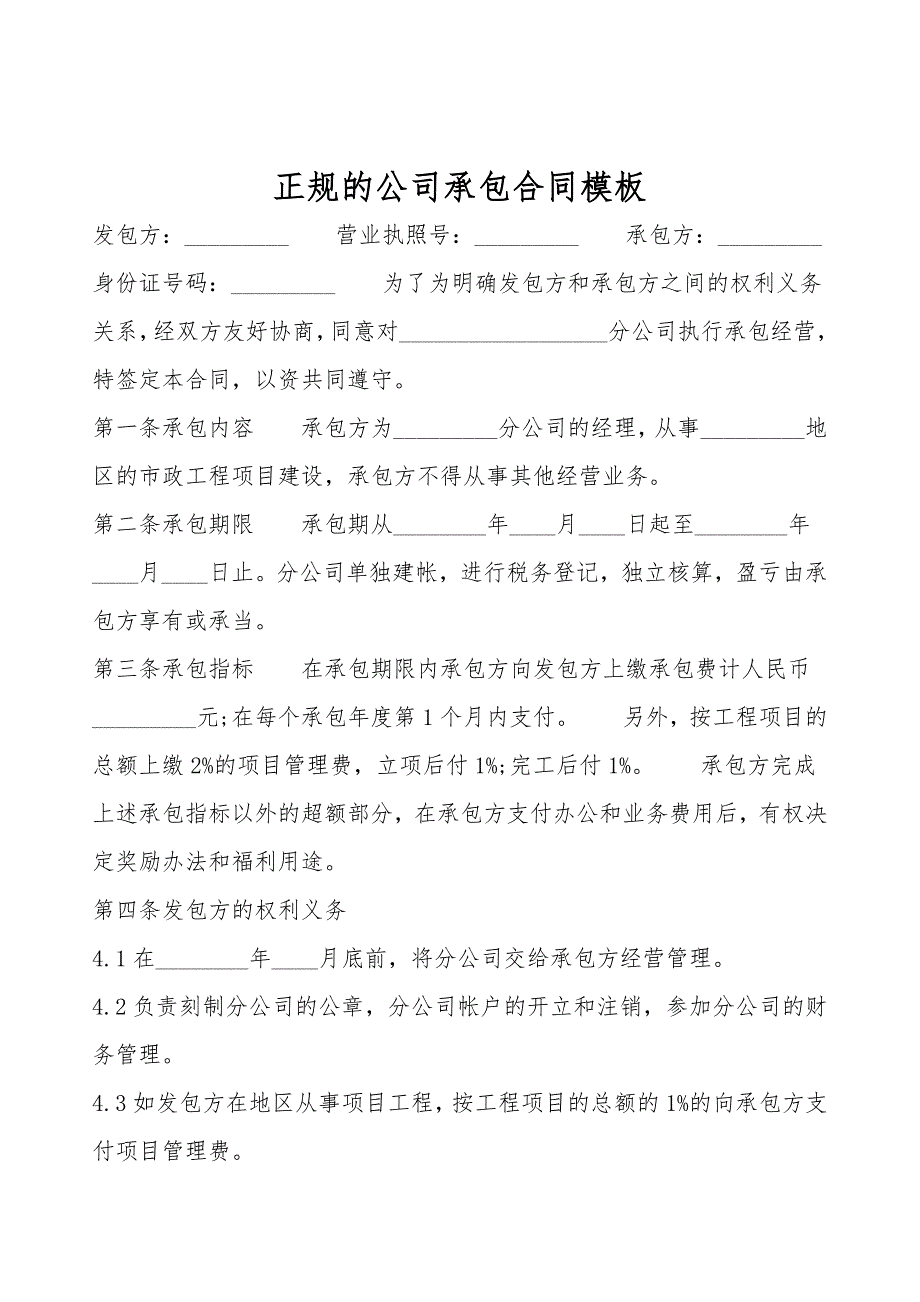 正规的公司承包合同模板
发包方：_________　　营业执照号：_________　　承包方：_________
身份证号码：_________　　为了为明确发包方和承包方之间的权利义务
关系，经双方友好协商，同意对__________________分公司执行承包经营，
特签定本合同，以资共同遵守。
第一条承包内容　　承包方为_________分公司的经理，从事_________地
区的市政工程项目建设，承包方不得从事其他经营业务。
第二条承包期限　　承包期从________年____月____日起至________年
____月____日止。分公司单独建帐，进行税务登记，独立核算，盈亏由承
包方享有或承当。
第三条承包指标　　在承包期限内承包方向发包方上缴承包费计人民币
_________元;在每个承包年度第1个月内支付。　　另外，按工程项目的
总额上缴2%的项目管理费，立项后付1%;完工后付1%。　　承包方完成
上述承包指标以外的超额部分，在承包方支付办公和业务费用后，有权决
定奖励办法和福利用途。
第四条发包方的权利义务
4.1在________年____月底前，将分公司交给承包方经营管理。
4.2负责刻制分公司的公章，分公司帐户的开立和注销，参加分公司的财
务管理。
4.3如发包方在地区从事项目工程，按工程项目的总额的1%的向承包方支
付项目管理费。